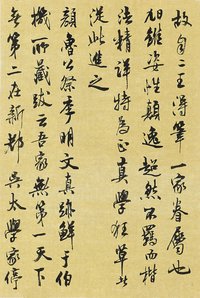 故自二王得筆一家眷屬也
旭雖姿性顛逸超然不羈而楷
法精詳特為正真學狂草
從此進之
顏魯公祭季明文真跡鮮于伯
機所藏跋云吾家無第一天下
第二在新都吳太學家停